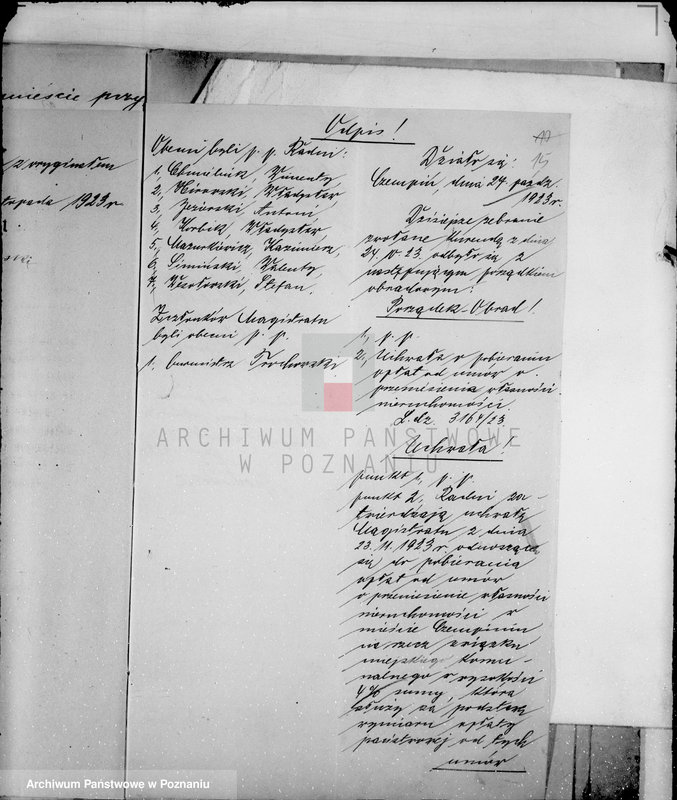 mieście przy
z oryginałem
listopada 1923 r.
Odpis!
Obecni byli p. p. Radni:
1, Chmielnik, Wincenty
2, Władysław
3, Jeziorski Antoni
4, Korbik, Władysław
5, Mazurkiewicz, Kazimierz,
6, Simiński, Walenty
7, Wesołowski, Stefan.
Członków Magistratu
byli obecni p. p.
1, burmistrz Trochowski
15
Działo się:
Czempiń, dnia 24 paźdz.
1923 r.
Dzisiejsze zebranie
zwołane kurendą z dnia
24 23. odbyło się z
następującym porządkiem
obradowym:
Porządek-Obrad!
1, p. p.
2, Uchwała o pobieraniu
opłat od umów o
przeniesienie własności
nieruchomości
L. dz. 3164/23
Uchwała!
punkt 1, p. p.
punkt 2, Radni za-
twierdzają uchwałę
Magistratu z dnia
23. 11. 1923 r. odnoszącą
się do pobierania
opłat od umów
o przeniesienie własności
nieruchomości w
mieście Czempiniu
na rzecz związku
miejskiego komu-
nalnego w wysokości
4% sumy, która
służy za podstawę
wymiaru opłaty
państwowej od tych
umów
ARCHIWUM PAŃSTWOWE
W POZNANIU
Archiwum Państwowe w Poznaniu